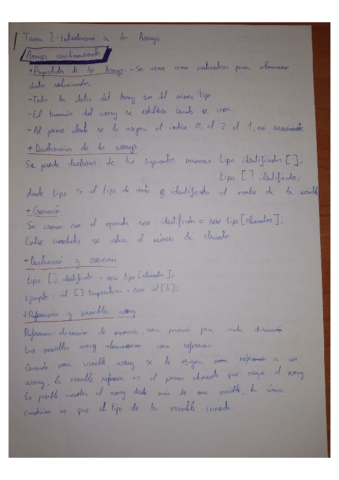 Tema 2: Introducción a los Arrays
Arrays unidimensionales
+ Propiedades de los Arrays - Se usan como para almacenar
datos relacionados
- Todos los datos del Array son del mismo tipo
- El tamaño del array se establece cuando se crea
- Al primer dato se le asigna el índice 0, al 2 el 1, así sucesivamente
+ Declaración de los arrays
Se puede declarar de las siguientes maneras tipo identificador [ ];
tipo [ ] identificador;
donde tipo es el tipo de dato e identificador el nombre de la variable
+ Creación
Se crean con el operador new identificador = new tipo [elementos];
Entre corchetes se indica el número de elementos
+ Declaración y creación
tipo [ ] identificador = new tipo [elementos];
ejemplo: int [ ] temperaturas = new int [ ];
+ Referencias y variables array
Referencia: dirección de memoria, una posición para cada dirección
Las variables array almacenan una referencia
Cuando una variable array se le asigna una referencia a un
array, la variable referencia es el primer elemento que ocupa el array
Es posible acceder al array desde más de una variable, la única
condición es que el tipo de la variable coincida.